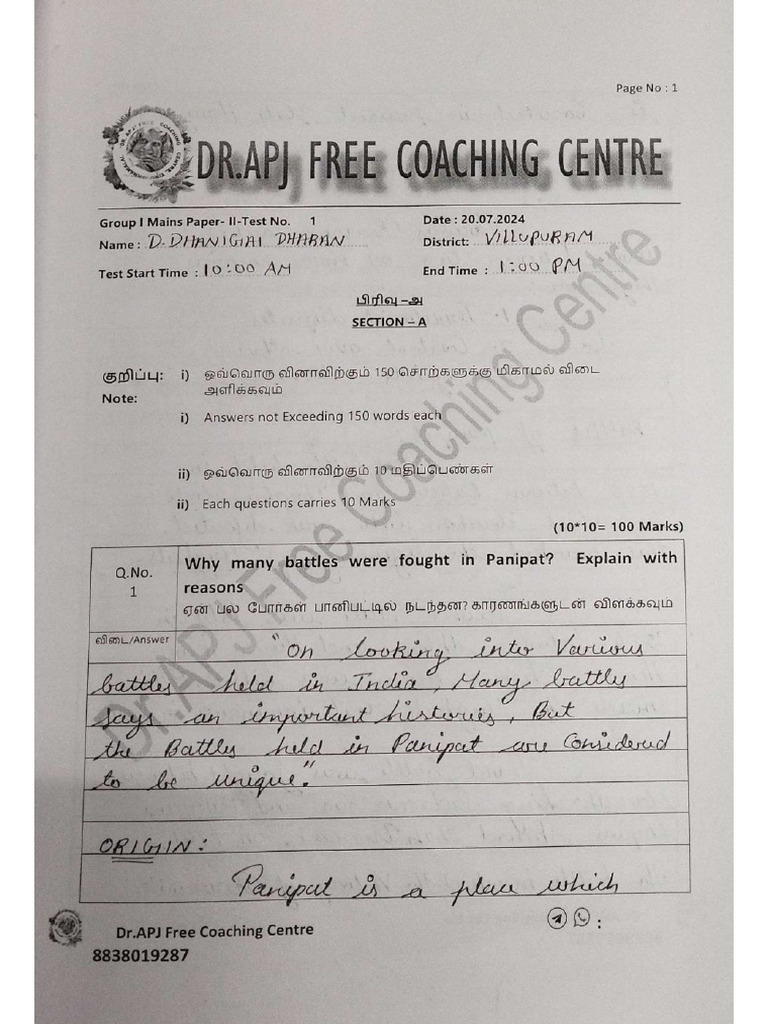 Page No : 1
DR.APJ FREE COACHING CENTRE
Group I Mains Paper- II-Test No. 1
Date : 20.07.2024
Name : D.DHANIGAI DHARAN
District: VILLUPURAM
Test Start Time : 10:00 AM
End Time : 1:00 PM
பிரிவு –அ
SECTION – A
குறிப்பு: i) ஒவ்வொரு வினாவிற்கும் 150 சொற்களுக்கு மிகாமல் விடை
அளிக்கவும்
Note:
i) Answers not Exceeding 150 words each
ii) ஒவ்வொரு வினாவிற்கும் 10 மதிப்பெண்கள்
ii) Each questions carries 10 Marks
(10*10= 100 Marks)
Q.No.
1
Why many battles were fought in Panipat? Explain with
reasons
ஏன பல போர்கள் பானிபட்டில் நடந்தன? காரணங்களுடன் விளக்கவும்
விடை/Answer
"On looking into Various
battles held in India, Many battles
says an important histories, But
the Battles held in Panipat are Considered
to be unique".
ORIGIN:
Panipat is a place which
Dr.APJ Free Coaching Centre
:
8838019287
Dr.APJ Free Coaching Centre